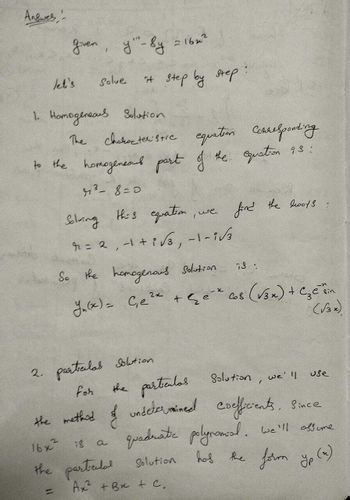 Answer :-
given, y''' - 8y = 16x²
let's solve it step by step :
1. Homogeneous Solution
The characteristic equation corresponding
to the homogeneous part of the equation is :
r³ - 8 = 0
Solving this equation, we find the roots :
r = 2, -1 + i√3, -1 - i√3
So the homogenous solution is :
yₕ(x) = C₁e²ˣ + C₂e⁻ˣ cos (√3x) + C₃e⁻ˣ sin
(√3x)
2. particular solution
For the particular solution, we'll use
the method of undetermined coefficients. Since
16x² is a quadratic polynomial. we'll assume
the particular solution has the form yₚ(x)
= Ax² + Bx + C.